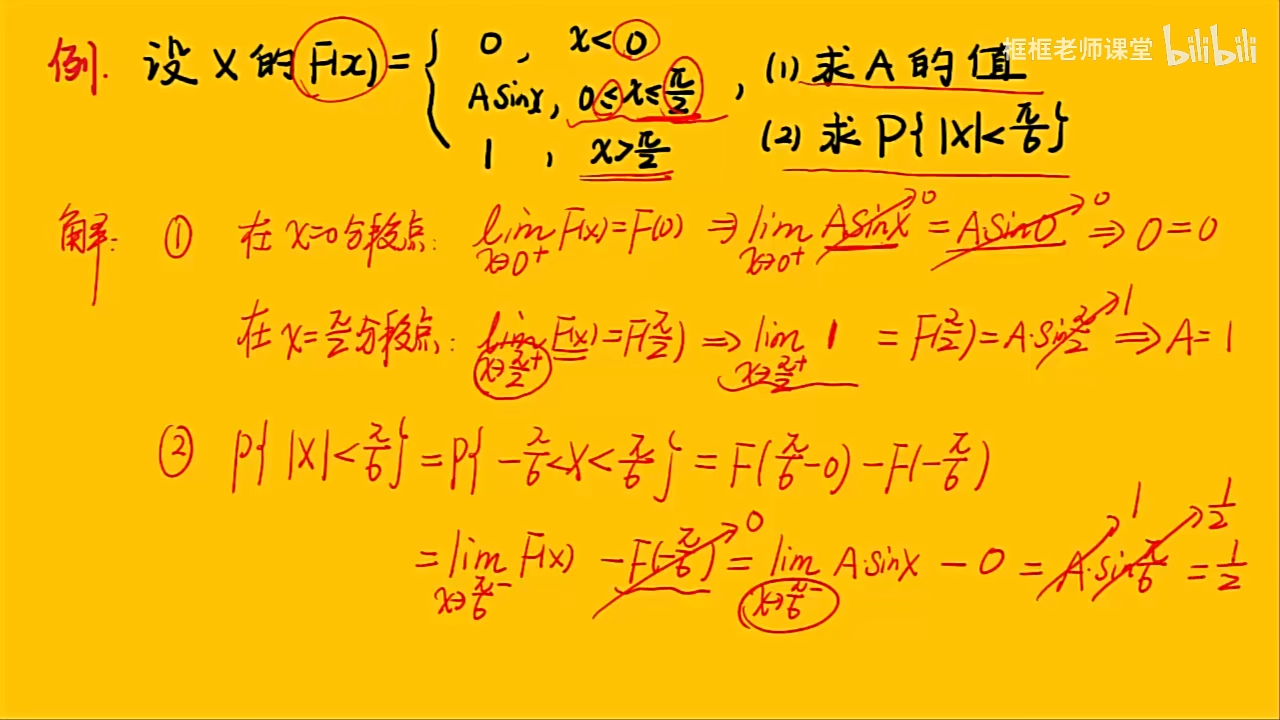 框框老师课堂 bilibili
例. 设 X 的 F(x) = { 0, x<0
Asinx, 0≤x≤π/2, (1) 求 A 的值
1, x>π/2 (2) 求 P{|X|<π/6}
解: ① 在 x=0 分段点: lim x→0⁺ F(x)=F(0) ⇒ lim x→0⁺ Asinx = A·sin0 ⇒ 0=0
0 0
在 x=π/2 分段点: lim x→π/2⁺ F(x)=F(π/2) ⇒ lim x→π/2⁺ 1 = F(π/2)=A·sinπ/2 ⇒ A=1
1
② P{|X|<π/6}=P{-π/6<X<π/6}=F(π/6-0)-F(-π/6)
0 1 1/2
=lim x→π/6⁻ F(x) -F(-π/6)=lim x→π/6⁻ A·sinx-0=A·sinπ/6=1/2